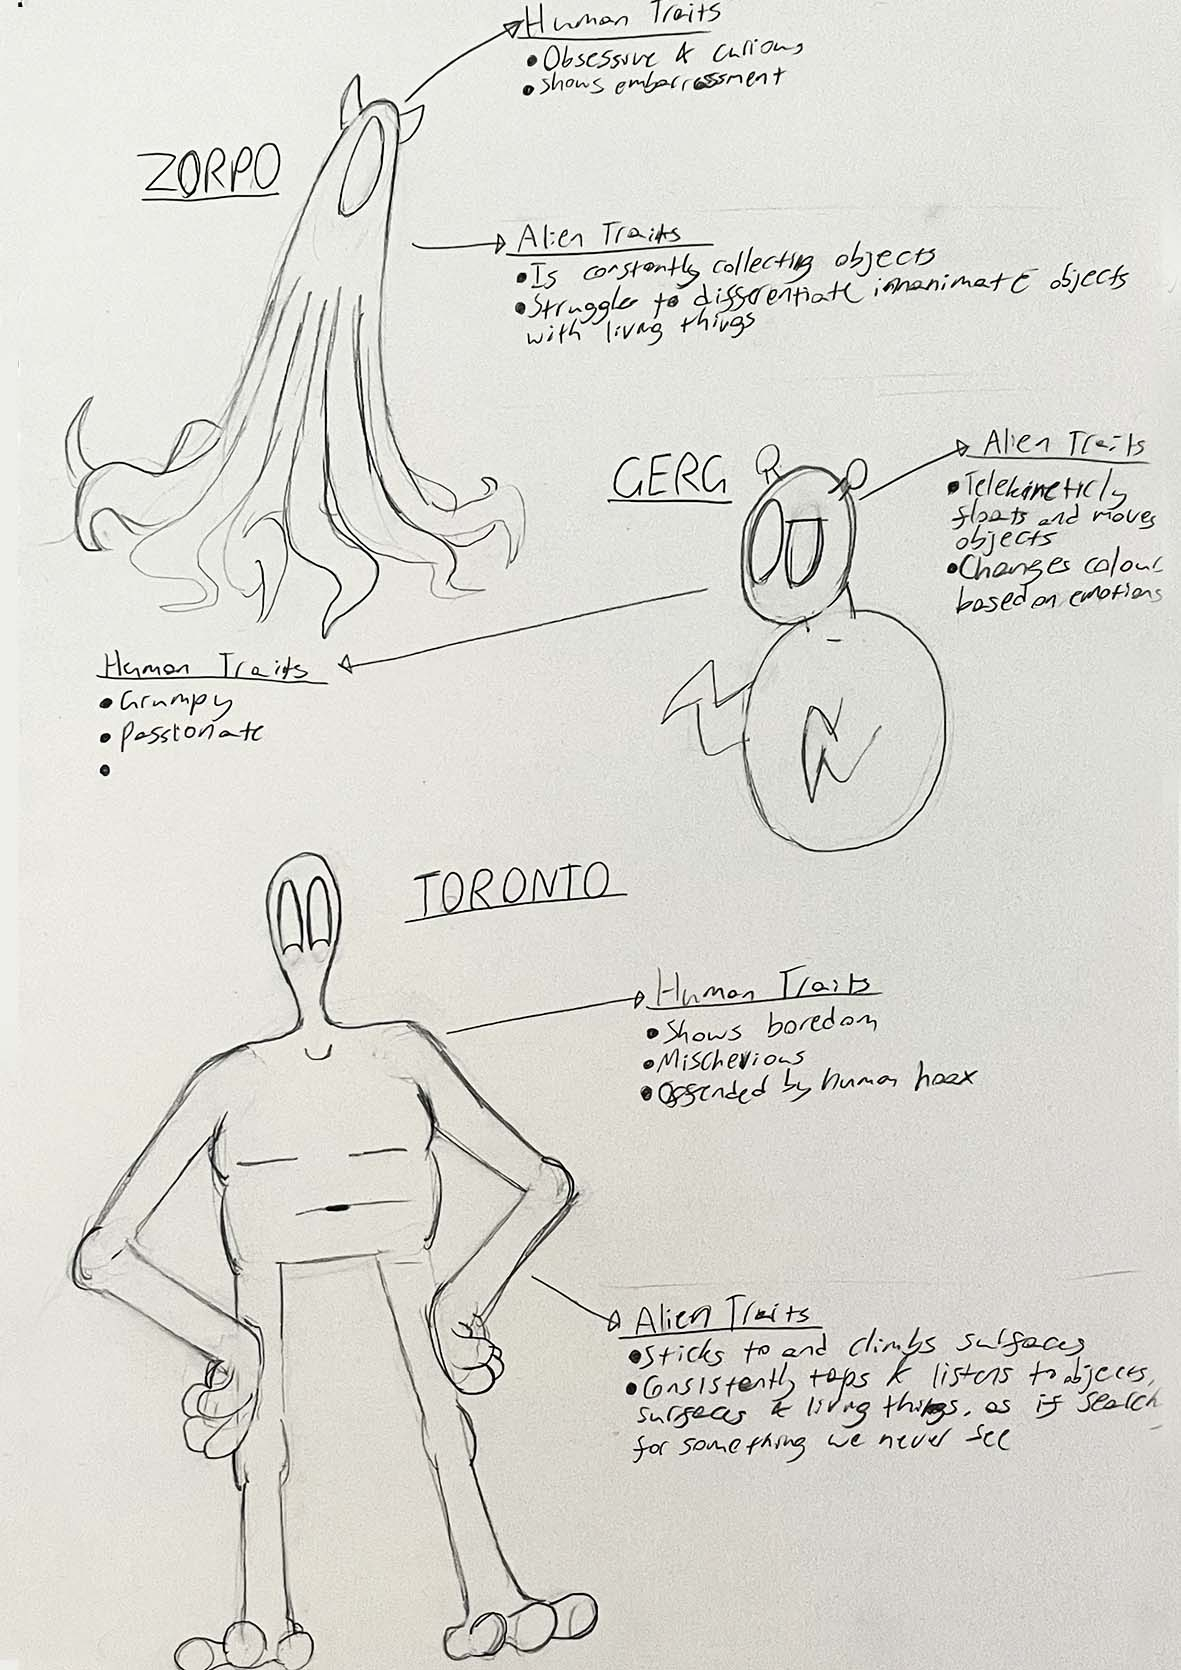 Human Traits
• Obsessive & curious
• Shows embarressment
ZORPO
Alien Traits
• Is constantly collecting objects
• Struggles to differentiate innanimate objects
with living things
GERG
Alien Traits
• Telekineticly
floats and moves
objects
• Changes colour
based on emotions
Human Traits
• Grumpy
• Passionate
•
TORONTO
Human Traits
• Shows boredom
• Mischevious
• Offended by human hoax
Alien Traits
• Sticks to and climbs surfaces
• Consistently taps & listens to objects,
surfaces & living things, as if search
for something we never see